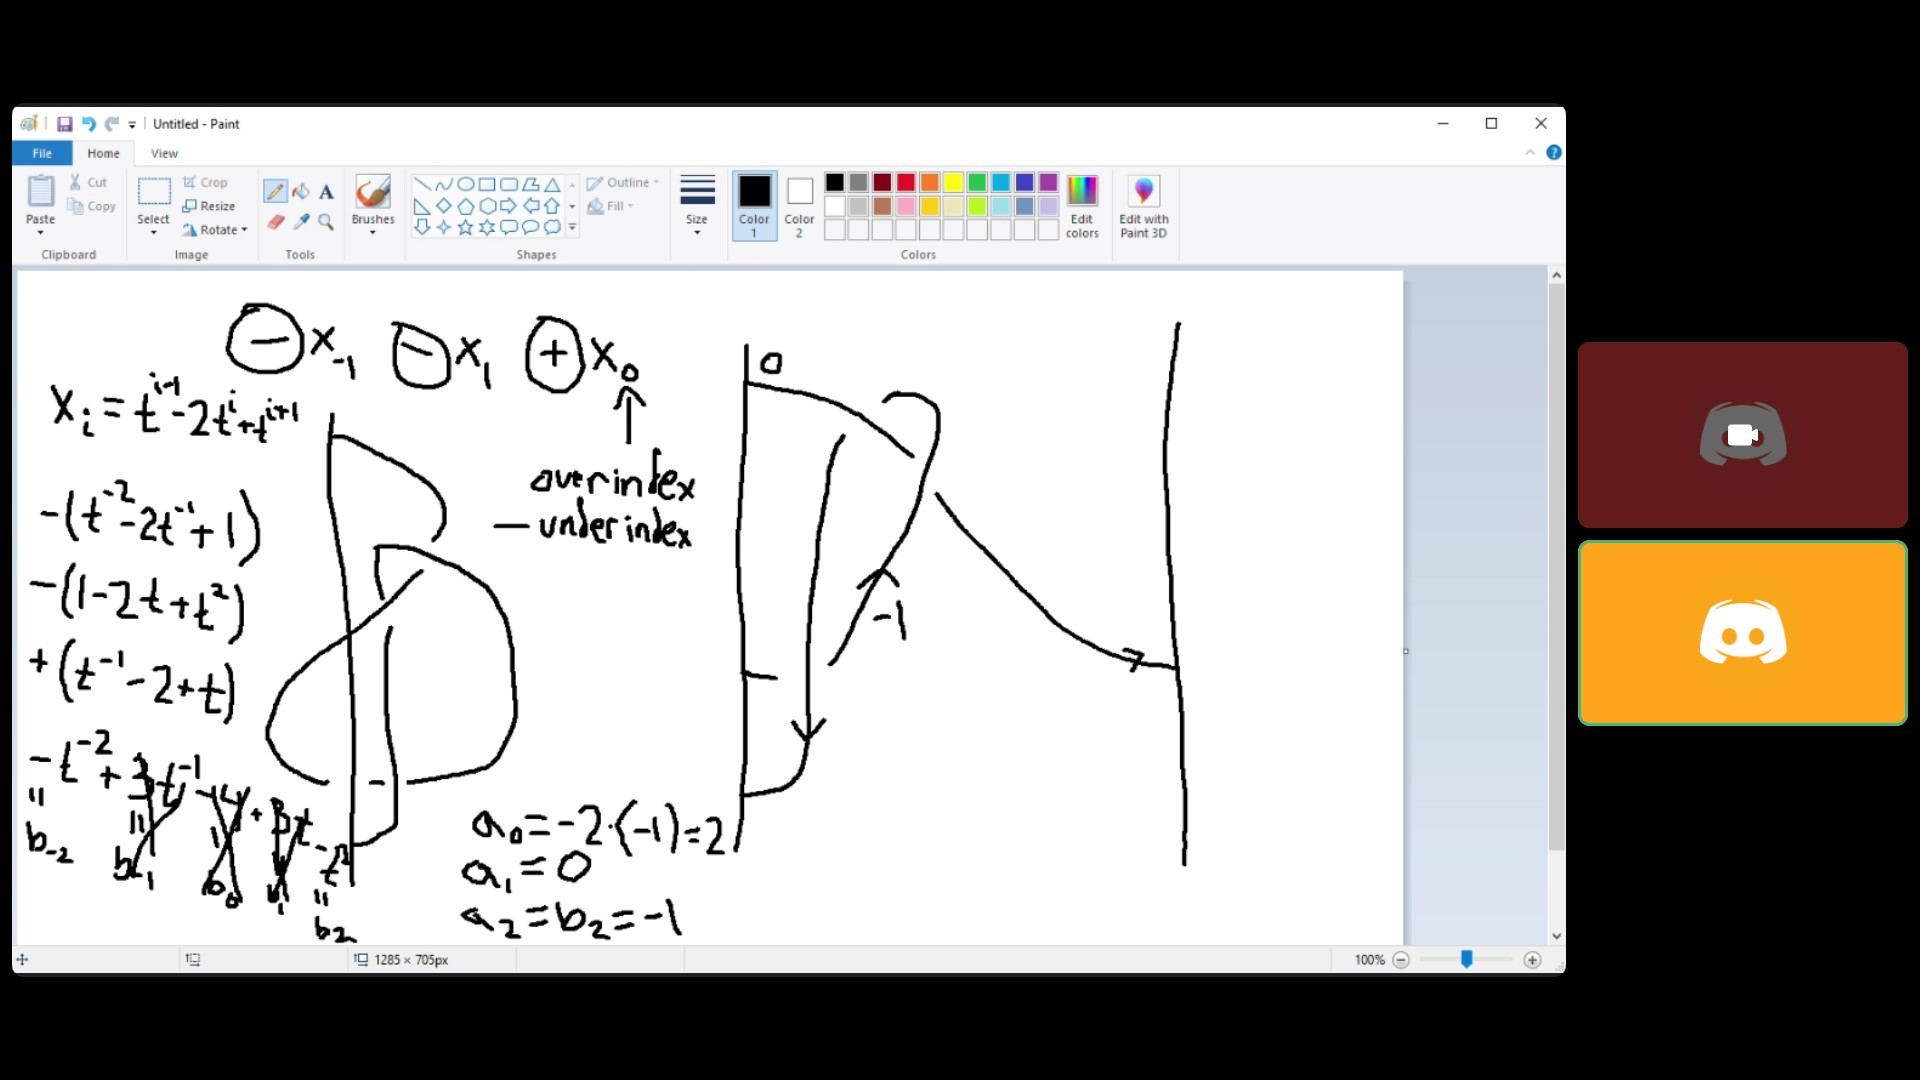 Untitled - Paint
File Home View
Paste
Cut
Copy
Clipboard
Select
Crop
Resize
Rotate
Image
A
Tools
Brushes
Outline
Fill
Shapes
Size
Color 1
Color 2
Edit colors
Colors
Edit with Paint 3D
⊖x₋₁ ⊖x₁ ⊕x₀
xᵢ = tⁱ⁻¹-2tⁱ+tⁱ⁺¹
over index
— under index
-(t⁻²-2t⁻¹+1)
-(1-2t+t²)
+(t⁻¹-2+t)
-t⁻²+3t⁻¹-4+3t-t²
b₋₂
b₀
b₁
b₂
a₀=-2·(-1)=2
a₁=0
a₂=b₂=-1
0
-1
1285 × 705px
100%